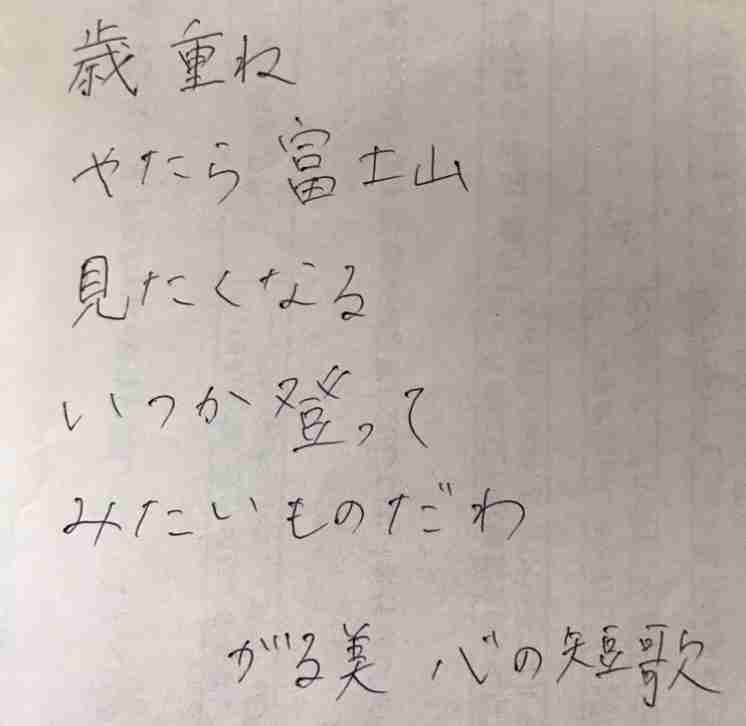 歳重ね
やたら富士山
見たくなる
いつか登って
みたいものだわ
がる美 心の短歌